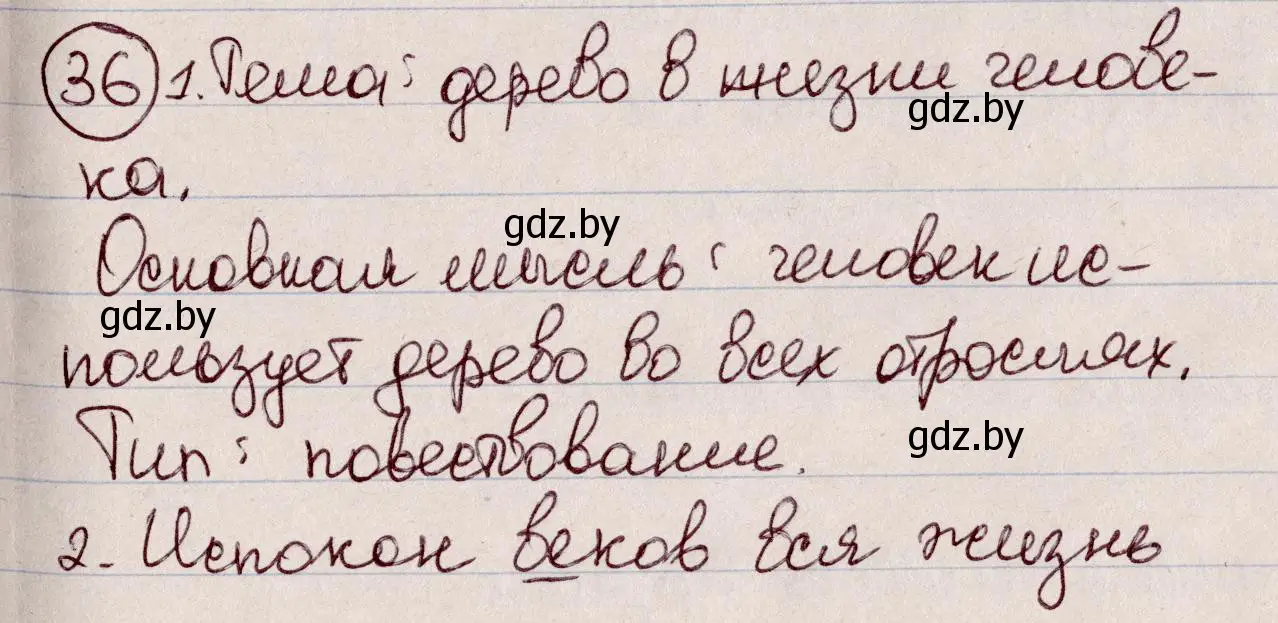 36 1. Тема: дерево в жизни челове-
gdz.by
ка.
gdz.by
Основная мысль: человек ис-
gdz.by
пользует дерево во всех отраслях.
Тип: повествование.
gdz.by
2. Испокон веков вся жизнь